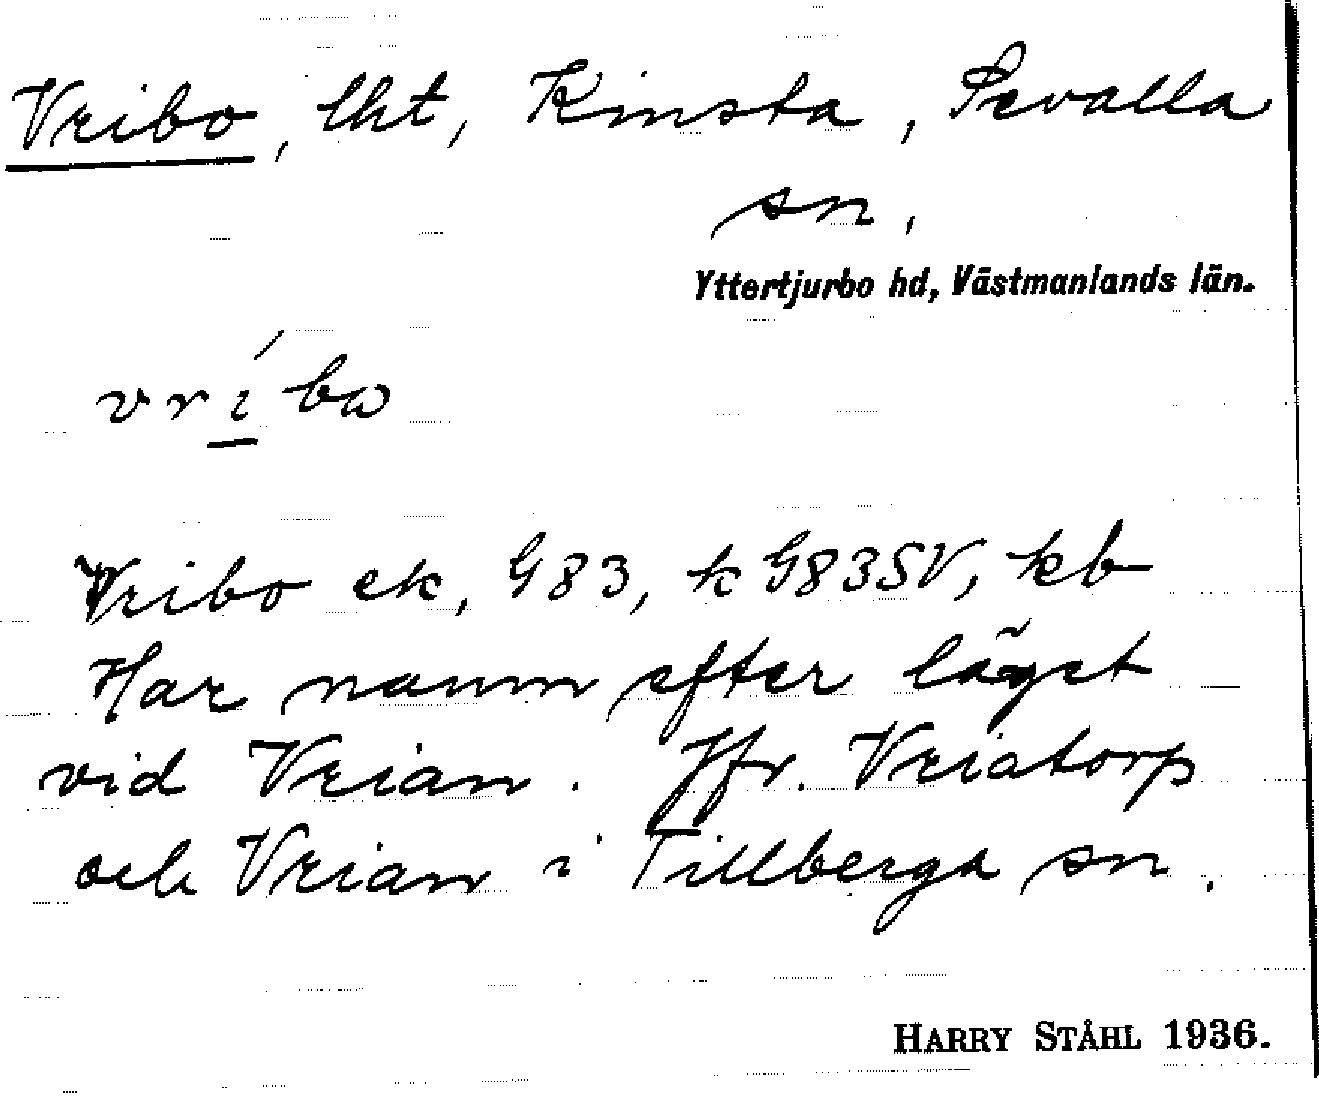 Vribo, lht, Kinsta, Sevalla
sn,
Yttertjurbo hd, Västmanlands län.
vríbω
Vribo ek, G83, k G83SV, kb
Har namn efter läget
vid Vrian. Jfr. Vriatorp
och Vrian i Tillberga sn.
HARRY STÅHL 1936.